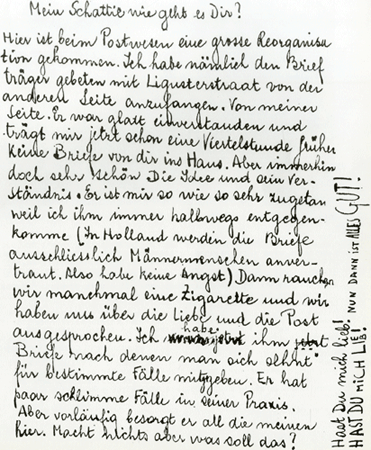 Mein Schattie wie geht es Dir?
Hier ist beim Postwesen eine grosse Reorganisa
tion gekommen. Ich habe nämlich den Brief
träger gebeten mit Ligusterstraat von der
anderen Seite anzufangen. Von meiner
Seite. Er war glatt einverstanden und
trägt mir jetzt schon eine Viertelstunde früher
keine Briefe von dir ins Haus. Aber immerhin
doch sehr schön Die Idee und sein Ver-
ständnis. Er ist mir so wie so sehr zugetan
weil ich ihm immer halbwegs entgegen-
komme (In Holland werden die Briefe
ausschliesslich Männermenschen anver-
traut. Also habe keine Angst) Dann rauchen
wir manchmal eine Zigarette und wir
haben uns über die Liebe und die Post
ausgesprochen. Ich habe ihm jetzt
Briefe nach denen man sich sehnt
für bestimmte Fälle mitgegeben. Er hat
paar schlimme Fälle in seiner Praxis.
Aber vorläufig besorgt er all die meinen
hier. Macht nichts aber was soll das?
Hast Du mich lieb!
HAST DU MICH LIEB! NUN DANN IST ALLES GUT!